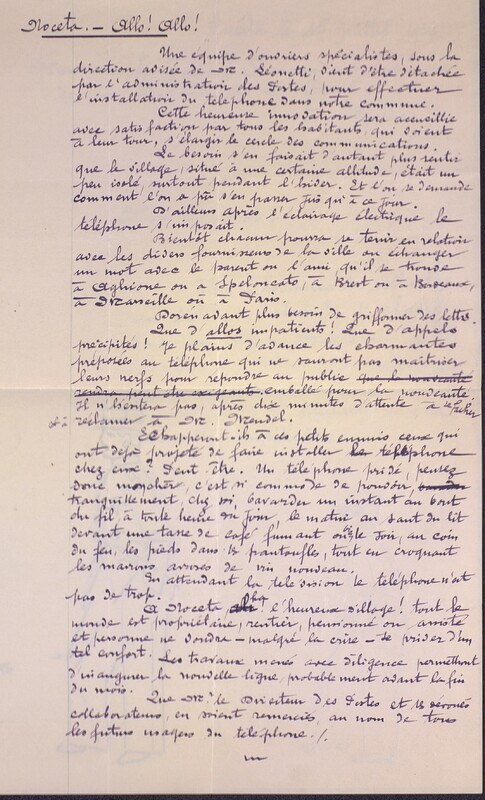 Noceta. — Allo! Allo!
Une équipe d'ouvriers spécialistes, sous la
direction avisée de Mr. Léonetti, vient d'être détachée
par l'administration des Postes, pour effectuer
l'installation du téléphone dans notre commune.
Cette heureuse innovation sera accueillie
avec satisfaction par tous les habitants, qui voient
à leur tour, s'élargir le cercle des communications.
Le besoin s'en faisait d'autant plus sentir
que le village, situé à une certaine altitude, était un
peu isolé, surtout pendant l'hiver. Et l'on se demande
comment l'on a pu s'en passer jusqu'à ce jour.
D'ailleurs après l'éclairage électrique le
téléphone s'imposait.
Bientôt chacun pourra se tenir en relation
avec les divers fournisseurs de la ville ou échanger
un mot avec le parent ou l'ami, qu'il se trouve
à Aghione ou à Speloncato, à Brest ou à Bordeaux,
à Marseille ou à Paris.
Dorénavant plus besoin de griffonner des lettres.
Que d'allos impatients! Que d'appels
précipités! Je plains d'avance les charmantes
préposées au téléphone qui ne sauront pas maitriser
leurs nerfs pour répondre au public que la nouveauté
rendra peut être exigeant. emballé pour la nouveauté.
Il n'hésitera pas, après dix minutes d'attente à
réclamer à Mr. Mandel.
Echapperont-ils à ces petits ennuis ceux qui
ont déjà projeté de faire installer le téléphone
chez eux? Peut être. Un téléphone privé, pensez
donc mon cher, c'est si commode de pouvoir,
tranquillement, chez soi, bavarder un instant au bout
du fil, à toute heure du jour, le matin au saut du lit
devant une tasse de café fumant ou le soir, au coin
du feu, les pieds dans les pantoufles, tout en croquant
les marrons arrosés de vin nouveau.
En attendant la télévision le téléphone n'est
pas de trop.
A Noceta, l'heureux village! tout le
monde est propriétaire, rentier, pensionné ou assisté
et personne ne voudra — malgré la crise — se priver d'un
tel confort. Les travaux menés avec diligence permettront
d'inaugurer la nouvelle ligne, probablement avant la fin
du mois.
Que Mr. le Directeur des Postes et ses dévoués
collaborateurs, en soient remerciés, au nom de tous
les futurs usagers du téléphone./.